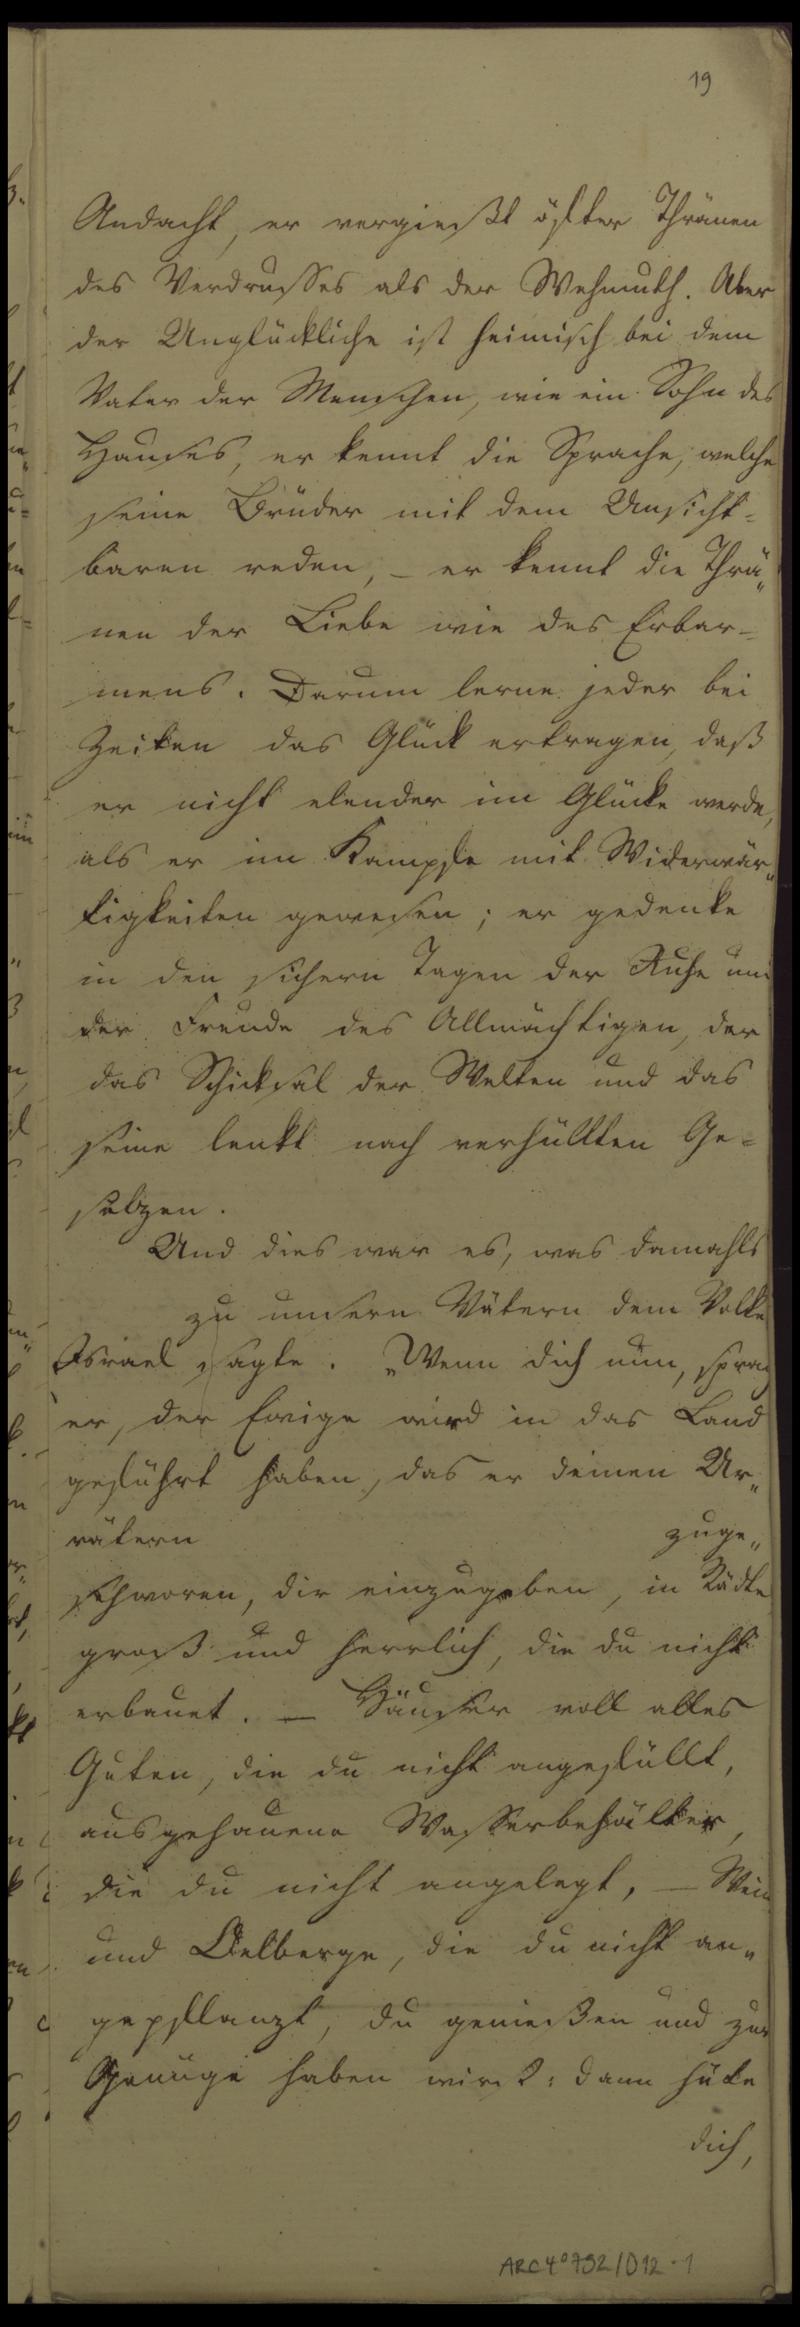 19
Andacht, er vergießt öfter Thränen
des Verdrusses als der Wehmuth. Aber
der Unglückliche ist heimisch bei dem
Vater der Menschen, wie ein Sohn des
Hauses, er kennt die Sprache, welche
seine Brüder mit dem Unsicht-
baren reden, – er kennt die Thrä„
nen der Liebe wie des Erbar-
mens. Darum lerne jeder bei
Zeiten das Glück ertragen, daß
er nicht elender im Glücke werde,
als er im Kampfe mit Widerwär„
tigkeiten gewesen; er gedenke
in den sichern Tagen der Ruhe und
der Freude des Allmächtigen, der
das Schicksal der Welten und das
seine lenkt nach verhüllten Ge-
setzen.
Und dies war es, was damahls
zu unsern Vätern dem Volke
Israel sagte. „Wenn dich nun, sprach
er, der Ewige wird in das Land
geführt haben, das er deinen Ur„
vätern zuge„
schworen, dir einzugeben, in Städte
groß und herrlich, die du nicht
erbauet. – Häuser voll alles
Guten, die du nicht angefüllt,
ausgehauene Wasserbehälter,
die du nicht angelegt, – Wein
und Oelberge, die du nicht an„
gepflanzt, du genießen und zur
Genüge haben wirst: dann hüte
dich,
ARC 4° 792/D12-1